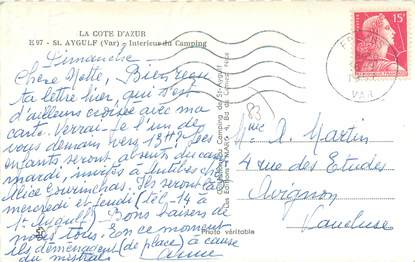 LA COTE D'AZUR
E 97 - St. AYGULF (Var) - Interieur du Camping
Dimanche
Chère Yette, Bien reçu
ta lettre hier, qui s'est
d'ailleurs croisée avec ma
carte. Verrai-je l'un de
vous demain vers 13H? Les
enfants seront absents du camp
mardi, invités à
Alice
mercredi et jeudi (tél. 14 à
St Aygulf). Bons baisers de
moi à tous. En ce moment
ils déménagent (de place) à cause
du mistral.
Camping de St-Aygulf
Les Editions "MAR", 4, Bd de
Photo véritable
15F
VAR
83
Mme A. Martin
4 rue des Etudes
Avignon
Vaucluse